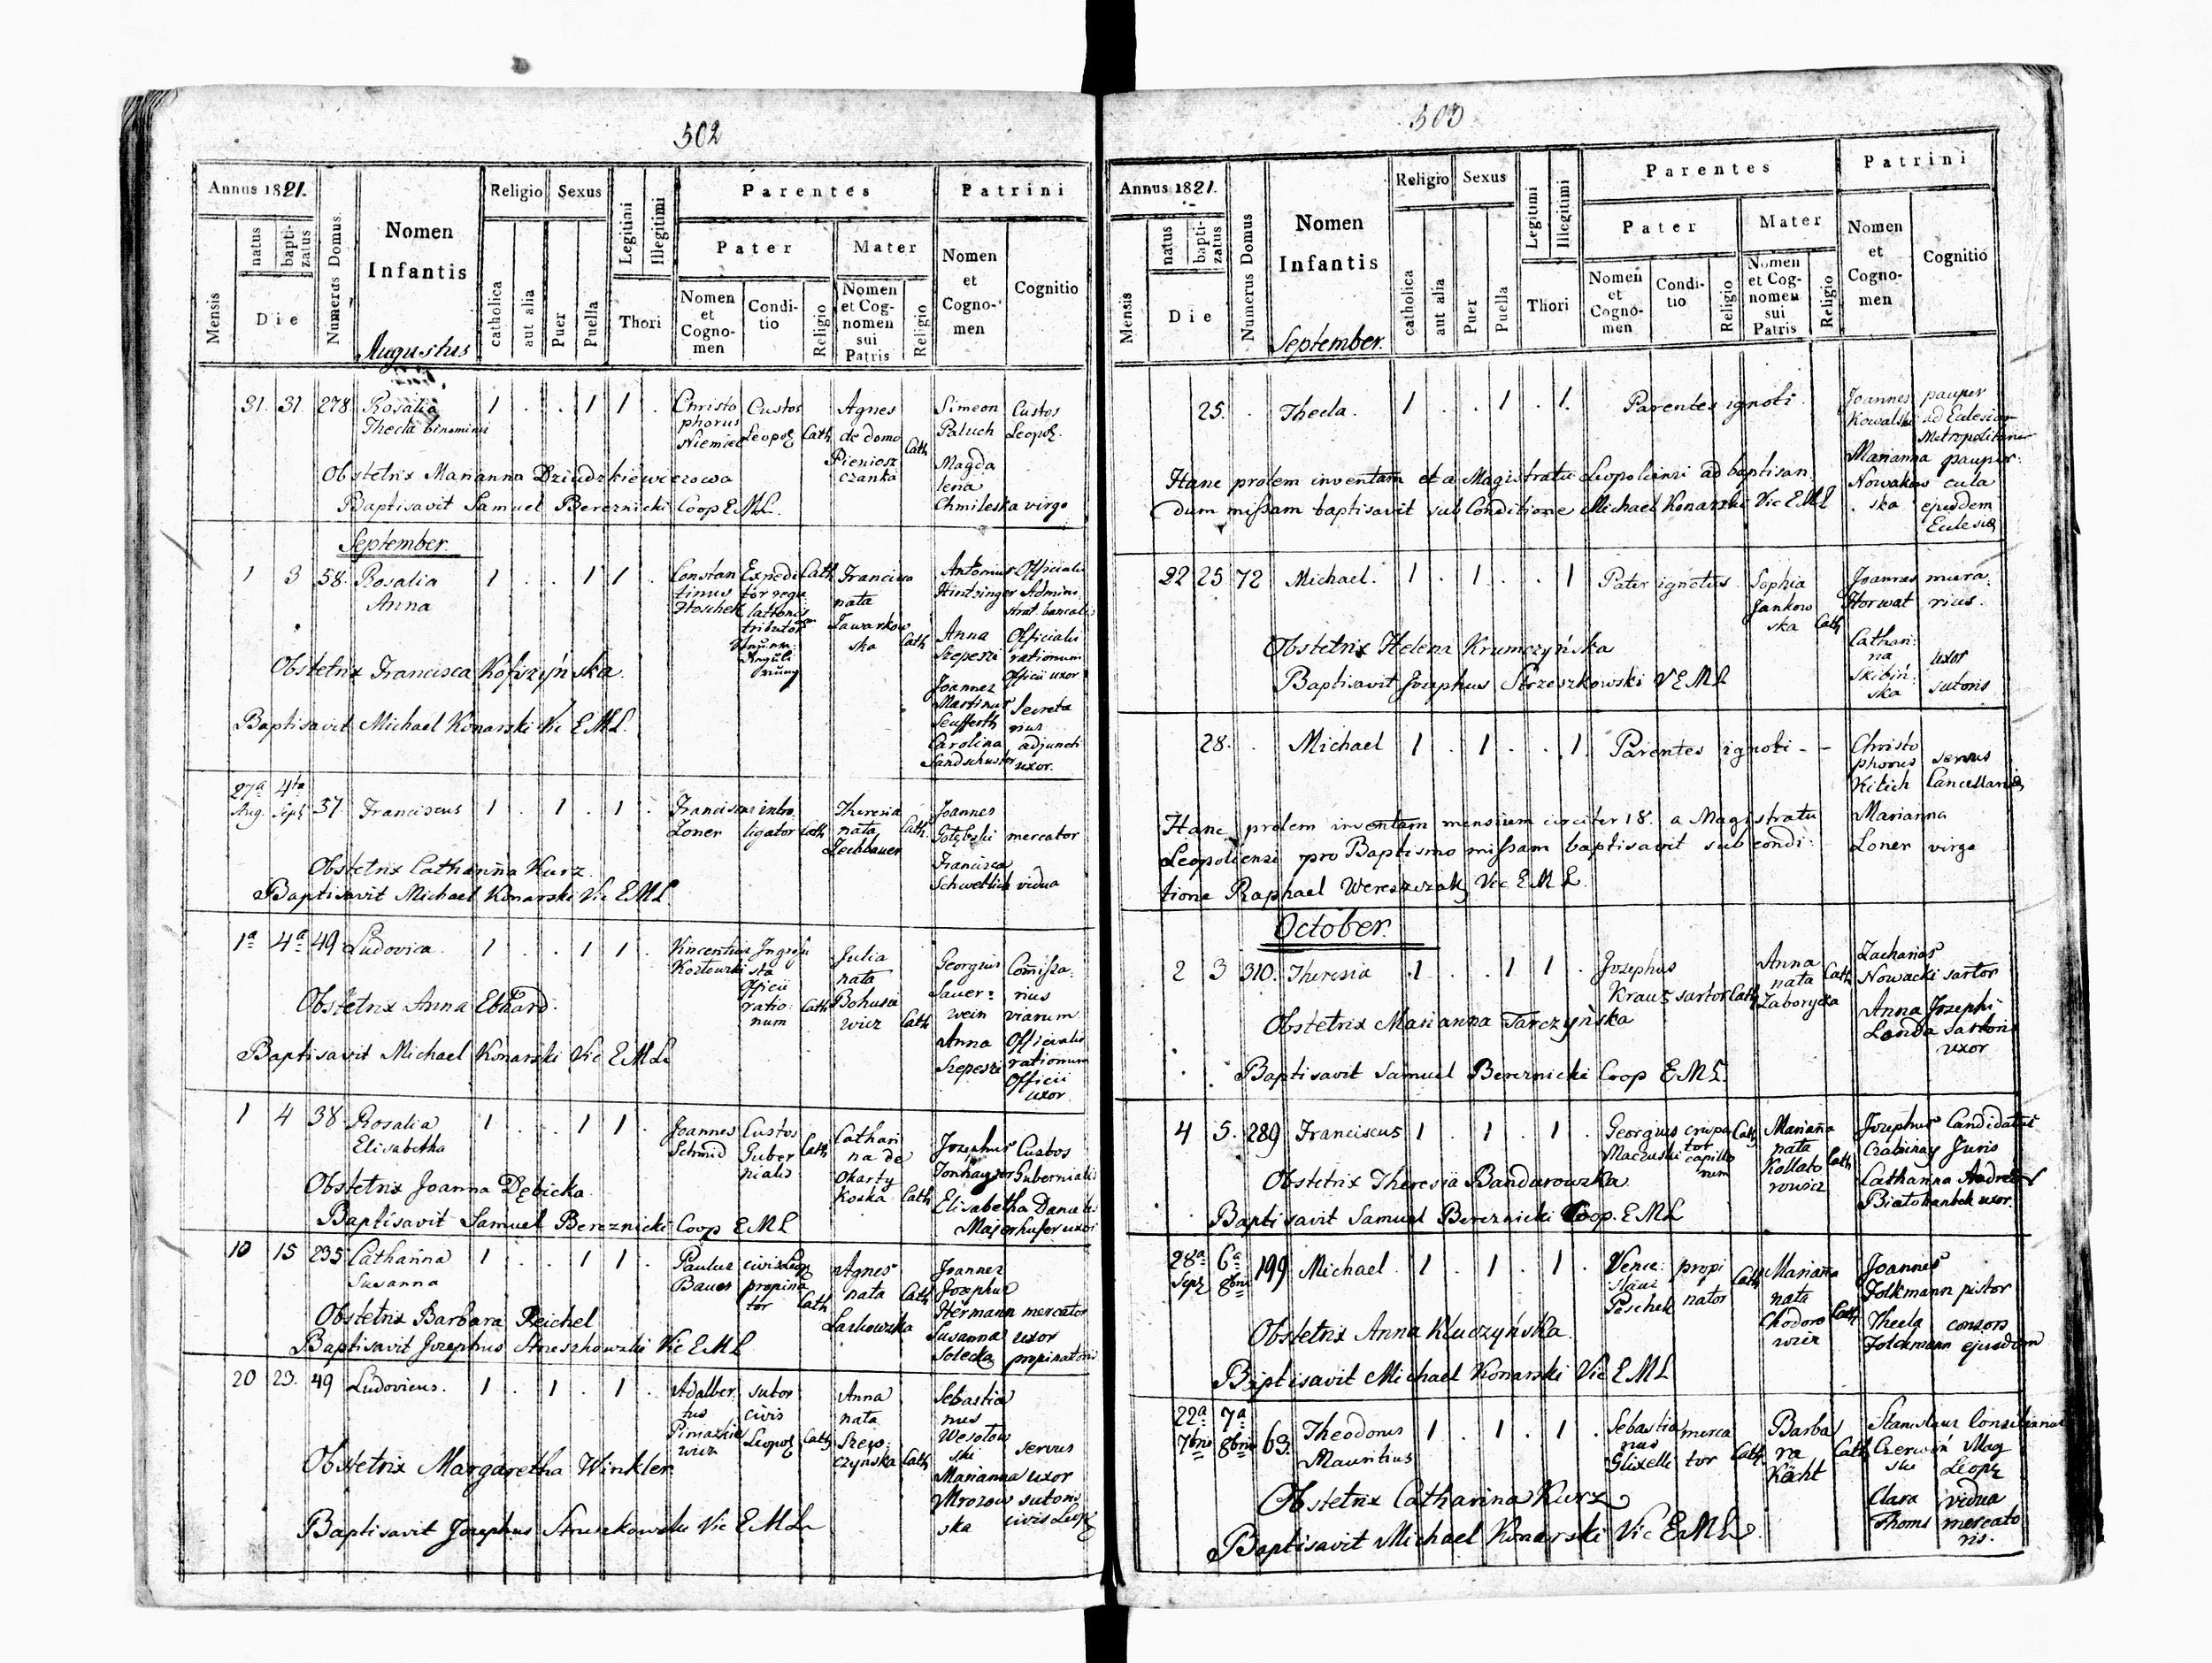 502
Annus 1821.
Numerus Domus
Nomen Infantis
Religio
Sexus
Legitimi
Illegitimi
Parentes
Patrini
Mensis
natus
bapti-zatus
Die
catholica
aut alia
Puer
Puella
Thori
Pater
Mater
Nomen et Cogno-men
Condi-tio
Religio
Nomen et Cog-nomen sui Patris
Religio
Nomen et Cogno-men
Cognitio
Augustus
31. 31. 278 Rosalia Thecla binominis 1 . . 1 1 .
Christophorus Niemiec Custos Leopol Cath
Agnes de domo Pienioszczanka Cath
Simeon Paluch Custos Leopol.
Magdalena Chmileska virgo
Obstetrix Marianna Dziudzkiewiczowa
Baptisavit Samuel Bereznicki Coop EML.
September.
1 3 58. Rosalia Anna 1 . . 1 1 .
Constantinus Hoschek Expeditor regulationis Cath
Francisca nata Jawarkowska Cath
Antonius Hintzinger Officialis Administrat. bancalis
Anna Szepeszi Officialis rationum Officii uxor
Joannes Martinus Seufferth Secretarius
Carolina Sandschuster adjuncti uxor.
Obstetrix Francisca Kofszyńska.
Baptisavit Michael Konarski Vic EML.
27a Aug. 4ta Sept 37. Franciscus 1 . 1 . 1 .
Franciscus Loner introligator Cath
Theresia nata Zechbauer Cath.
Joannes Gołębski mercator
Francisca Schwetlich vidua
Obstetrix Catharina Kurz.
Baptisavit Michael Konarski Vic EML
1a 4a 49 Ludovica. 1 . . 1 1 .
Vincentius Kozłowski Ingrossista Officii rationum Cath
Julia nata Bohusiewicz Cath
Georgius Sauerwein Comissarius viarum
Anna Szepeszi Officialis rationum Officii uxor
Obstetrix Anna Ebhard.
Baptisavit Michael Konarski Vic EML
1 4 38 Rosalia Elisabetha 1 . . 1 1 .
Joannes Schmid Custos Gubernialis Cath
Catharina de Okarty Koska Cath
Josephus Tonhauser Custos Gubernialis
Elisabetha Majerhufer uxor
Obstetrix Joanna Dębicka.
Baptisavit Samuel Bereznicki Coop EML
10 15 235 Catharina Susanna 1 . . 1 1 .
Paulus Bauer civis Leop propinator Cath
Agnes nata Laskowska Cath
Joannes Josephus Hermann mercator
Susanna Solecka uxor propinatoris
Obstetrix Barbara Reichel
Baptisavit Josephus Strzeszkowski Vic EML
20 23. 49 Ludovicus. 1 . 1 . 1 .
Adalbertus Pimazkiewicz sutor civis Leopol Cath
Anna nata Szewczynska Cath
Sebastianus Wesołowski servus
Marianna Mrozowska uxor sutoris civis Leopol
Obstetrix Margaretha Winkler.
Baptisavit Joseph. Strzeszkowski Vic EML
503
Annus 1821.
Numerus Domus
Nomen Infantis
Religio
Sexus
Legitimi
Illegitimi
Parentes
Patrini
Mensis
natus
bapti-zatus
Die
catholica
aut alia
Puer
Puella
Thori
Pater
Mater
Nomen et Cogno-men
Condi-tio
Religio
Nomen et Cog-nomen sui Patris
Religio
Nomen et Cogno-men
Cognitio
September.
25. . Thecla. 1 . . 1 . 1.
Parentes ignoti.
Joannes Kowalski pauper ad Eclesiam Metropolitanam
Marianna Nowakowska paupercula ejusdem Eclesiae
Hanc prolem inventam et a Magistratu Leopoliensi ad baptisan
dum missam baptisavit sub Conditione Michael Konarski Vic EML
22 25 72 Michael. 1 . 1 . . 1
Pater ignotus.
Sophia Jankowska Cath
Joannes Horwat murarius.
Catharina Skibińska uxor sutoris
Obstetrix Helena Krumczyńska
Baptisavit Josephus Strzeszkowski VEML
28. . Michael 1 . 1 . . 1.
Parentes ignoti - -
Christophorus Kitich servus Cancellariae
Marianna Loner virgo
Hanc prolem inventam mensium circiter 18. a Magistratu
Leopoliensi pro Baptismo missam baptisavit sub condi:
tione Raphael Wereszczak Vic EML.
October.
2 3 310. Theresia 1 . . 1 1 .
Josephus Krauz sartor Cath
Anna nata Zaborycka Cath
Zacharias Nowacki sartor
Anna Landa Josephi Sartoris uxor
Obstetrix Marianna Tarczyńska
Baptisavit Samuel Bereznicki Coop EML.
4 5. 289 Franciscus 1 . 1 . 1 .
Georgius Maczuski crispator capillorum Cath
Mariana nata Kollatorowicz Cath
Josephus Candidatus Juris
Catharina Andreae uxor.
Obstetrix Theresia Bandurowska
Baptisavit Samuel Bereznicki Coop. EML
28a Sept 6a 8bris 199 Michael. 1 . 1 . 1 .
Venceslaus Poschek propinator Cath
Marianna nata Chodorowicz Cath
Joannes Folkmann pistor
Thecla Folckmann consors ejusdem
Obstetrix Anna Kluczyńska.
Baptisavit Michael Konarski Vic EML
22a 7bris 7a 8bris 63. Theodorus Mauritius 1 . 1 . 1 .
Sebastianus Glixelli mercator Cath
Barbara Kächt Cath
Stanislaus Czerwiński Consiliarius Mag Leopol
Clara Thoms vidua mercatoris.
Obstetrix Catharina Kurz
Baptisavit Michael Konarski Vic EML.